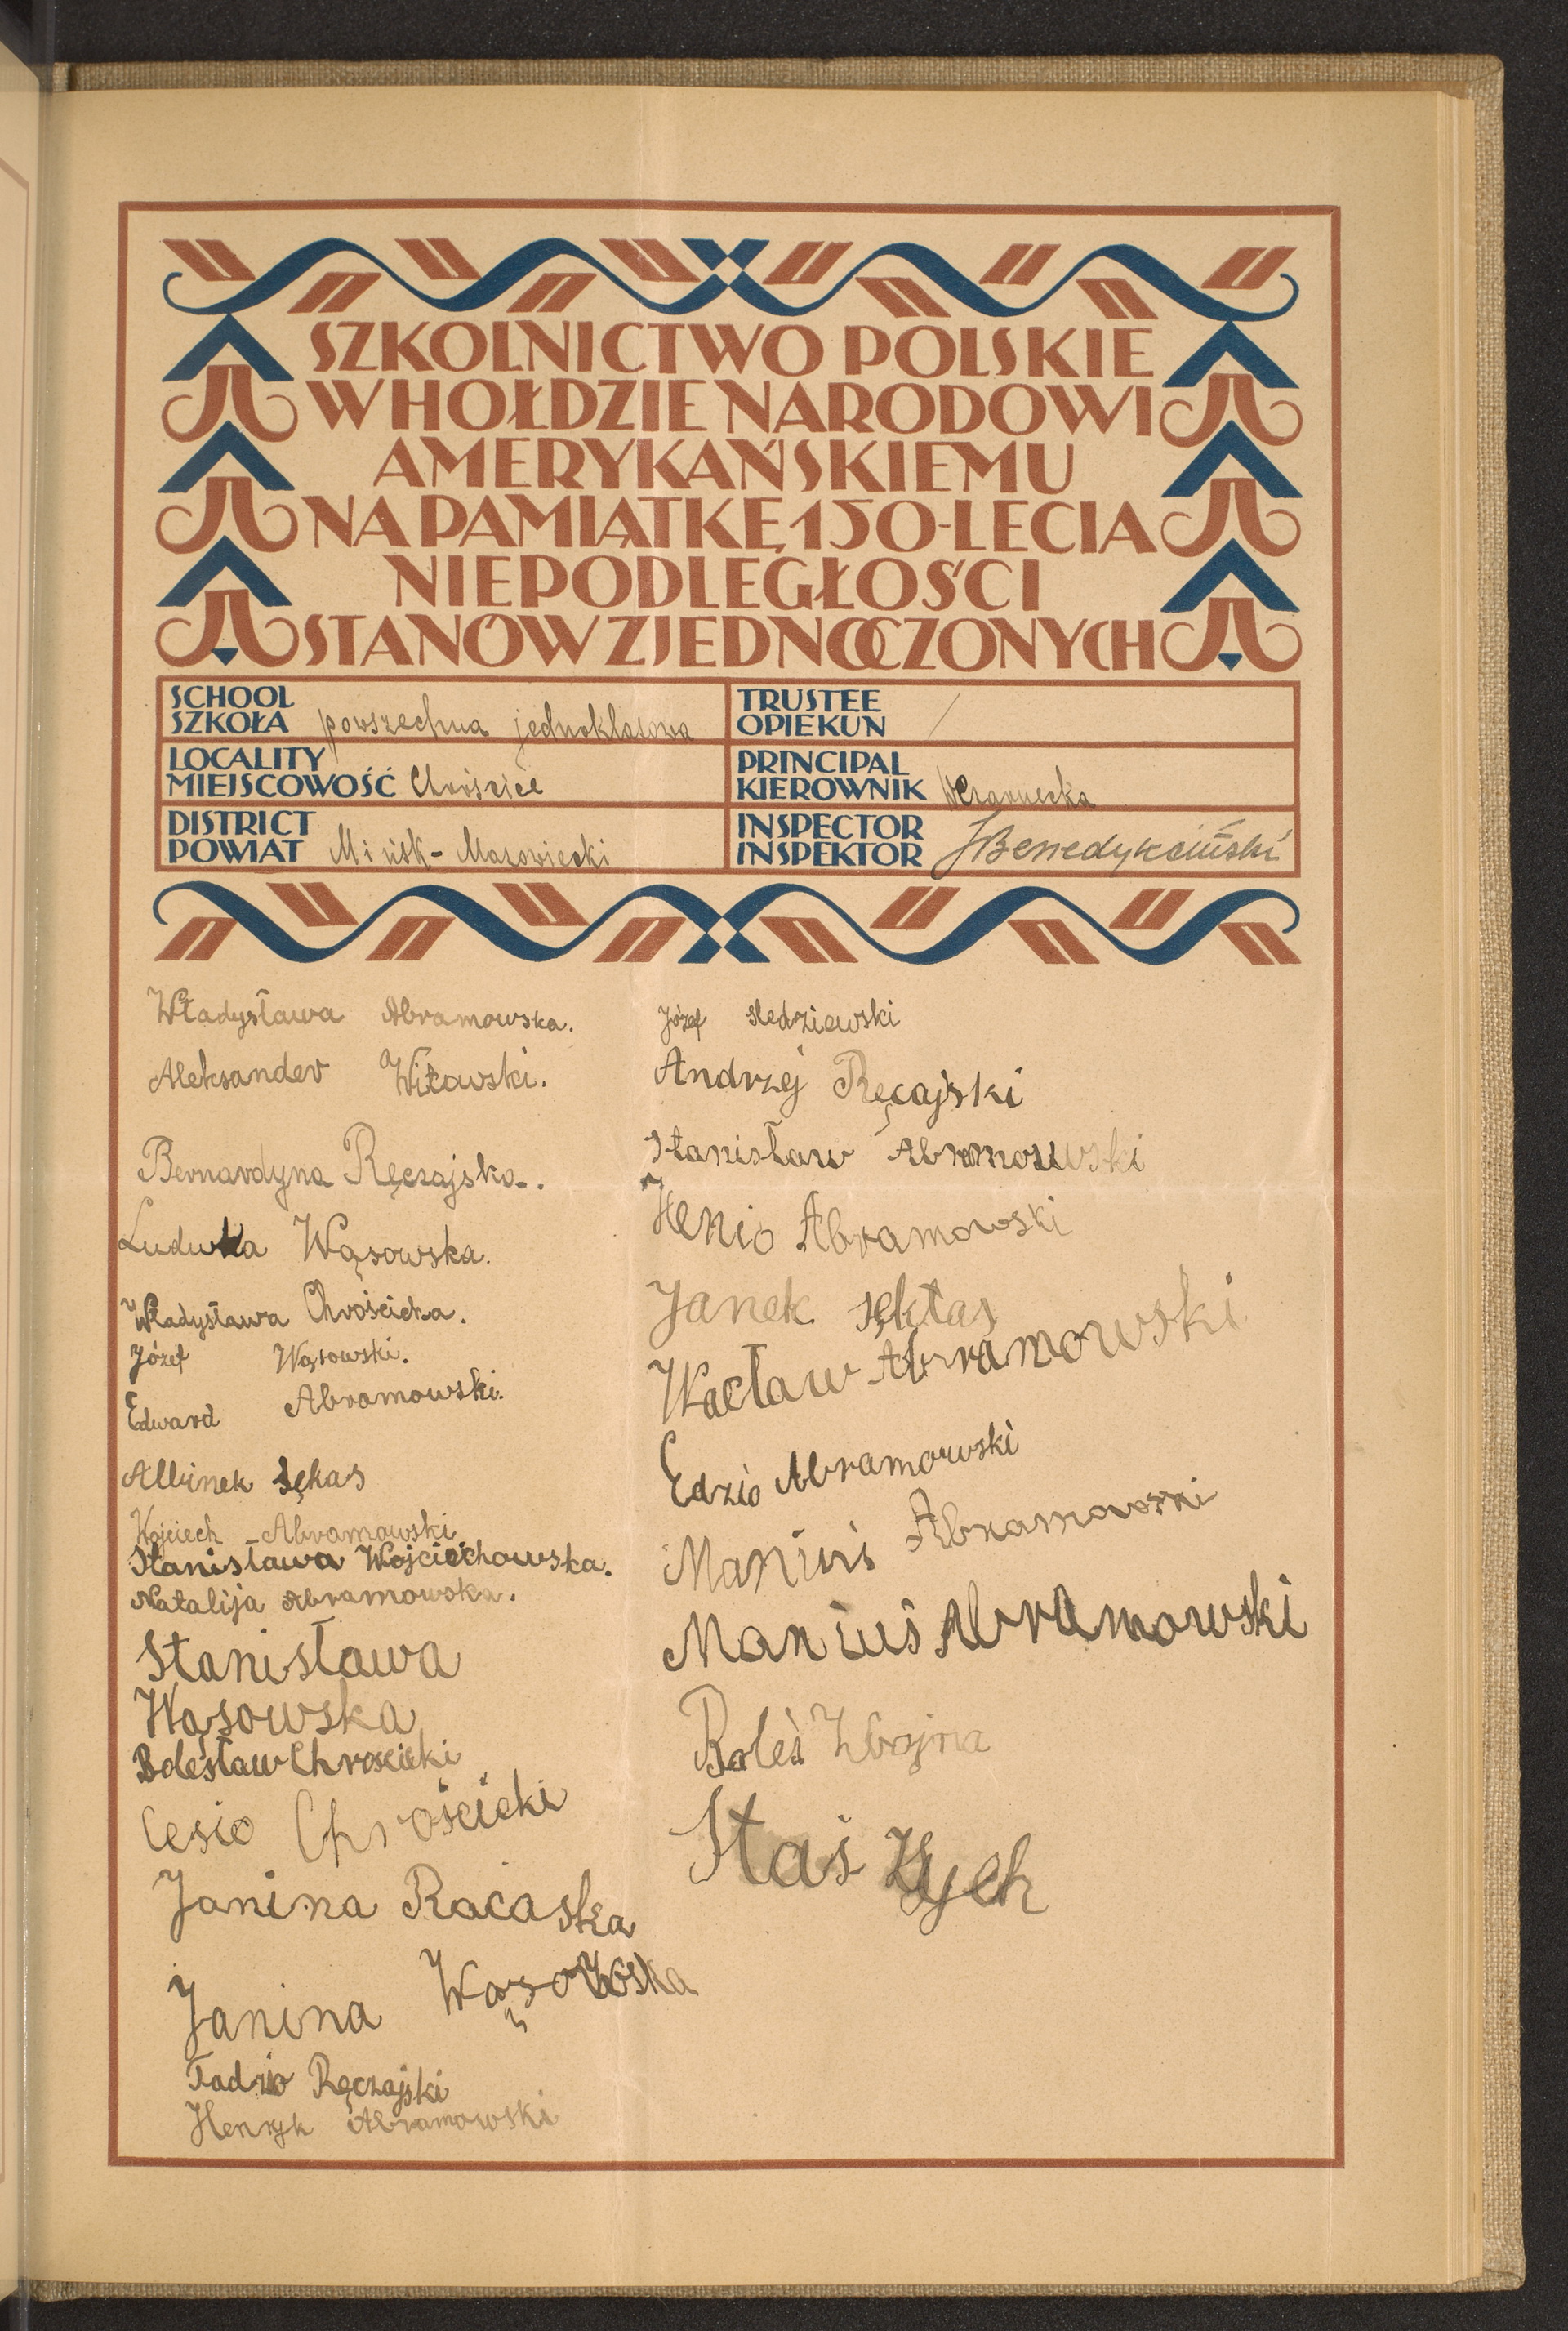 SZKOLNICTWO POLSKIE
W HOŁDZIE NARODOWI
AMERYKAŃSKIEMU
NA PAMIĄTKĘ 150-LECIA
NIEPODLEGŁOŚCI
STANÓW ZJEDNOCZONYCH
SCHOOL
SZKOŁA powszechna jednoklasowa
LOCALITY
MIEJSCOWOŚĆ Chrościce
DISTRICT
POWIAT Mińsk-Mazowiecki
TRUSTEE
OPIEKUN /
PRINCIPAL
KIEROWNIK WCzarnecka
INSPECTOR
INSPEKTOR
Władysława Abramowska.
Aleksander
Bernardyna Ręczajska.
Ludwka Wąsowska.
Władysława Chrościcka.
Józef Wąsowski.
Edward Abramowski.
Albinek Sękas
Wojciech Abramowski
Stanisława Wojciechowska.
Natalija Abramowska.
Stanisława
Wąsowska
Bolesław Chroscicki
Cesio Chrościcki
Janina Racaska
Janina Wąsowska
Tadzio Ręczajski
Henryk Abramowski
Józef Sledziewski
Andrzej Ręcajski
Stanisław Abramowski
Henio Abramowski
Janek Sęktas
Wacław Abramowski
Edzio Abramowski
Maniuś Abramowski
Maniuś Abramowski
Boleś Wojna
Staś Zych